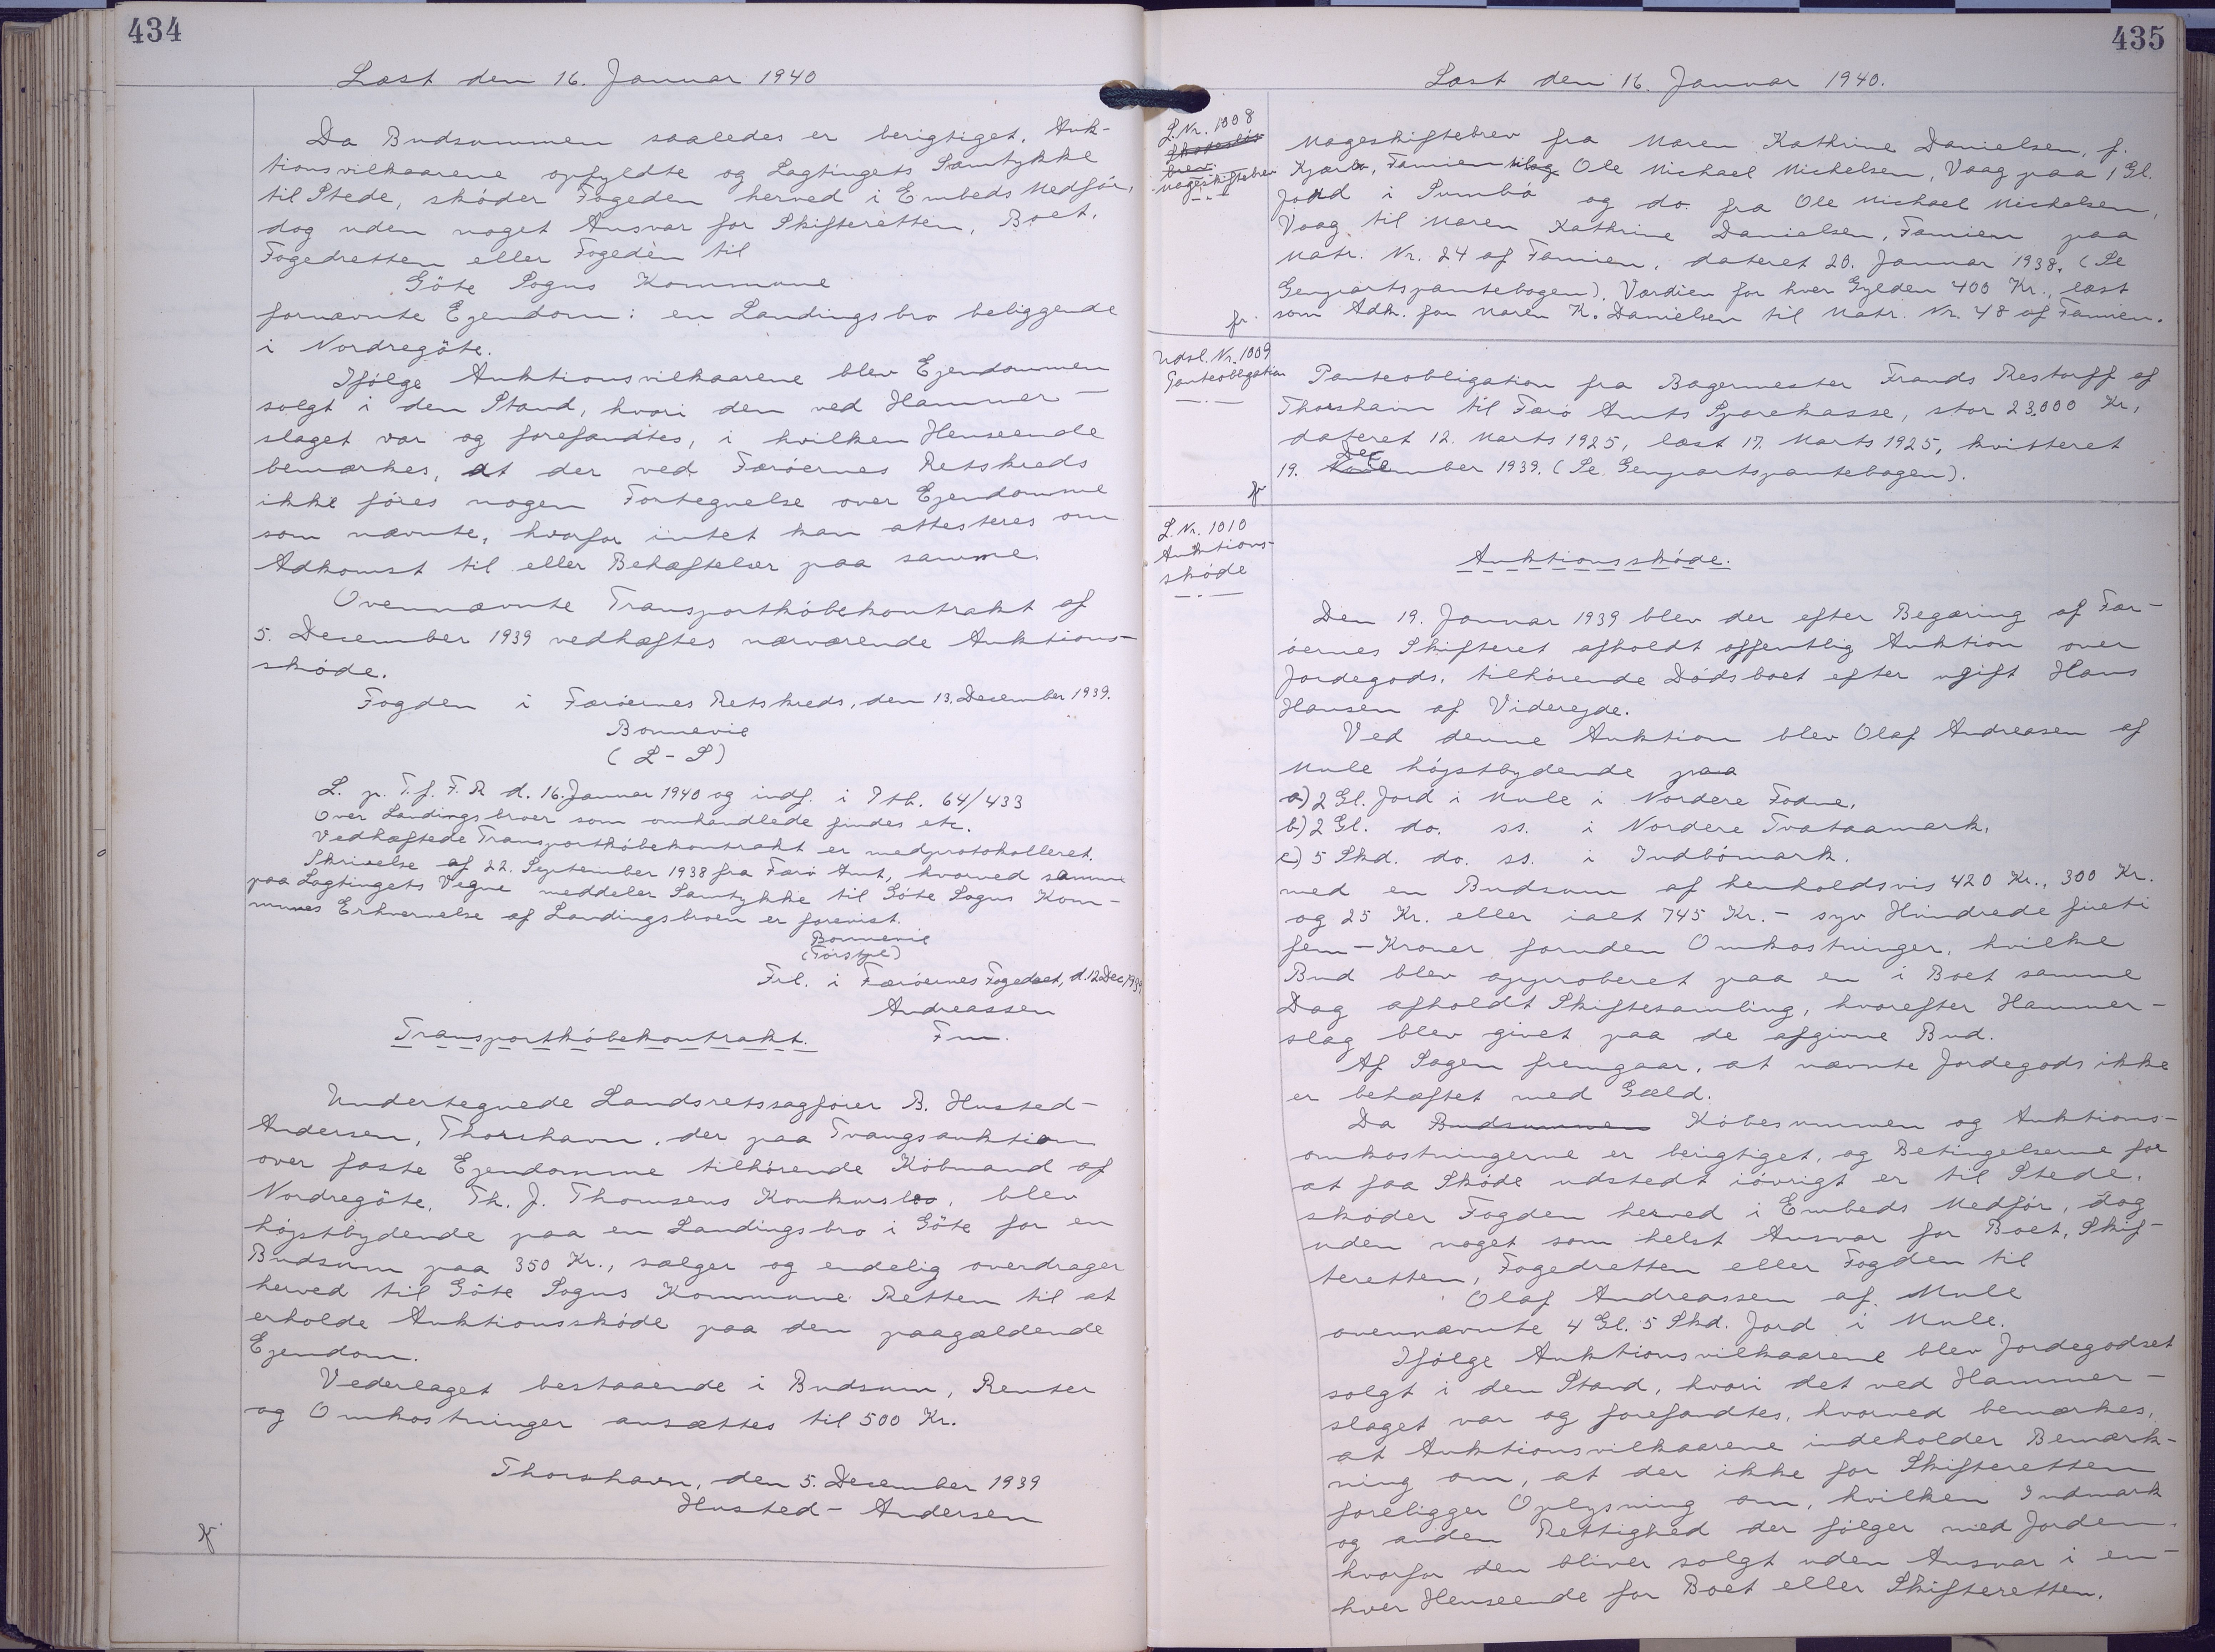 434
Læst den 16. Januar 1940
Da Budsummen saaledes er berigtiget, Auk-
tionsvilkaarene opfyldte og Lagtingets Samtykke
til Stede, skøder Fogeden herved i Embeds Medfør,
dog uden noget Ansvar for Skifteretten, Boet,
Fogedretten eller Fogeden til
Göte Sogns Kommune
fornævnte Ejendom: en Landingsbro beliggende
i Nordregöte.
Ifølge Auktionsvilkaarene blev Ejendommen
solgt i den Stand, hvori den ved Hammer-
slaget var og forefandtes, i hvilken Henseende
bemærkes, at der ved Færöernes Retskreds
ikke föres nogen Fortegnelse over Ejendomme
som nævnte, hvorfor intet kan attesteres om
Adkomst til eller Behæftelser paa samme.
Ovennævnte Transportköbekontrakt af
5. December 1939 vedhæftes nærværende Auktions-
sköde.
Fogden i Færöernes Retskreds, den 13. December 1939.
Bonnevie
(L-S)
L. p. T. f. F. R d. 16. Januar 1940 og indf. i Ptb. 64/433
Over Landingsbroer som omhandlede findes etc.
Vedhæftede Transportköbekontrakt er medprotokolleret.
Skrivelse af 22. September 1938 fra Færö Amt, hvorved samme
paa Lagtingets Vegne meddeler Samtykke til Göte Sogns Kom-
munes Erhvervelse af Landingsbroen er forevist.
Bonnevie
Frl. i Færöernes Fogedret, d. 12 Dec 1939
Andreassen
Fm.
Transportköbekontrakt.
Undertegnede Landsretssagförer B. Husted-
Andersen, Thorshavn, der paa Tvangsauktion
over faste Ejendomme tilhörende Köbmand af
Nordregöte, Th. J. Thomsens Konkursbo, blev
höjstbydende paa en Landingsbro i Göte for en
Budsum paa 350 Kr., sælger og endelig overdrager
herved til Göte Sogns Kommune Retten til at
erholde Auktionssköde paa den paagældende
Ejendom.
Vederlaget bestaaende i Budsum, Renter
og Omkostninger ansættes til 500 Kr.
Thorshavn, den 5. December 1939
Husted-Andersen
435
Læst den 16. Januar 1940.
L. Nr. 1008
Mageskiftebrev
Mageskiftebrev fra Maren Kathrine Danielsen, f.
Kjær, Famien til Ole Michael Mickelsen, Vaag paa 1 Gl.
Jord i Sumbö og do. fra Ole Michael Mickelsen,
Vaag til Maren Kathrine Danielsen, Famien paa
Matr. Nr. 24 af Famien, dateret 20. Januar 1938. (Se
Genpartspantebogen). Værdien for hver Gylden 400 Kr., læst
som Adk. for Maren K. Danielsen til Matr. Nr. 48 af Famien.
Udsl. Nr. 1009
Panteobligation
Panteobligation fra Bagermester Frands Restorff af
Thorshavn til Færö Amts Sparekasse, stor 23.000 Kr,
dateret 12. Marts 1925, læst 17. Marts 1925, kvitteret
19. December 1939. (Se Genpartspantebogen).
L. Nr. 1010
Auktions-
sköde
Auktionssköde.
Den 19. Januar 1939 blev der efter Begæring af Fær-
öernes Skifteret afholdt offentlig Auktion over
Jordegods, tilhörende Dödsboet efter ugift Hans
Hansen af Viderejde.
Ved denne Auktion blev Olaf Andreasen af
Mule höjstbydende paa
a) 2 Gl. Jord i Mule i Nordere Fodne,
b) 2 Gl. do. ss. i Nordere Tvataamark,
c) 5 Skd. do. ss. i Indbömark.
med en Budsum af henholdsvis 420 Kr., 300 Kr.
og 25 Kr. eller ialt 745 Kr. - syv Hundrede fireti
fem - Kroner foruden Omkostninger, hvilke
Bud blev approberet paa en i Boet samme
Dag afholdt Skiftesamling, hvorefter Hammer-
slag blev givet paa de afgivne Bud.
Af Sagen fremgaar, at nævnte Jordegods ikke
er behæftet med Gæld.
Da Budsummen Köbesummen og Auktions-
omkostningerne er berigtiget, og Betingelserne for
at faa Sköde udstedt iövrigt er til Stede,
sköder Fogden herved i Embeds Medfør, dog
uden noget som helst Ansvar for Boet, Skif-
teretten, Fogedretten eller Fogden til
Olaf Andreassen af Mule
ovennævnte 4 Gl. 5 Skd. Jord i Mule.
Ifölge Auktionsvilkaarene blev Jordegodset
solgt i den Stand, hvori det ved Hammer-
slaget var og forefandtes, hvorved bemærkes,
at Auktionsvilkaarene indeholder Bemærk-
ning om, at der ikke for Skifteretten
foreligger Oplysning om, hvilken Indmark
og anden Rettighed der fölger med Jorden
hvorfor den bliver solgt uden Ansvar i en-
hver Henseende for Boet eller Skifteretten.